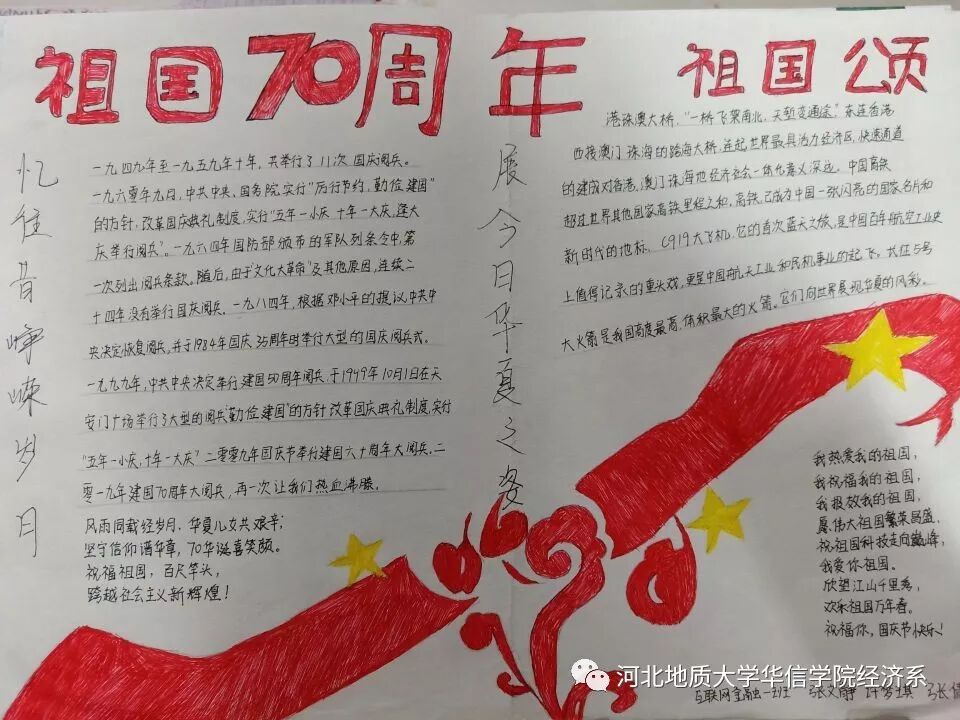 祖国70周年 祖国颂
忆往昔峥嵘岁月
一九四九年至一九五九年十年，共举行了11次国庆阅兵。
一九六零年九月，中共中央、国务院，实行"厉行节约，勤俭建国"
的方针，改革国庆典礼制度，实行"五年一小庆、十年一大庆，逢大
庆举行阅兵"。一九六四年国防部颁布的军队列条令中，第
一次列出阅兵条款。随后，由于"文化大革命"及其他原因，连续二
十四年没有举行国庆阅兵。一九八四年，根据邓小平的提议，中共中
央决定恢复阅兵，并于1984年国庆35周年时举行大型的国庆阅兵式。
一九九九年，中共中央决定举行建国50周年阅兵，于1949年10月1日在天
安门广场举行了大型的阅兵"勤俭建国"的方针改革国庆典礼制度，实行
"五年一小庆，十年一大庆"二零零九年国庆节举行建国六十周年大阅兵，二
零一九年建国70周年大阅兵，再一次让我们热血沸腾。
风雨同载经岁月，华夏儿女共艰辛；
坚守信仰谱华章，70华诞喜笑颜。
祝福祖国，百尺竿头，
跨越社会主义新辉煌！
展今日华夏之姿
港珠澳大桥，"一桥飞架南北，天堑变通途"，东连香港
西接澳门珠海的跨海大桥，连起世界最具活力经济区，快速通道
的建成对香港，澳门珠海地经济社会一体化意义深远。中国高铁
超过世界其他国家高铁里程之和，高铁，已成为中国一张闪亮的国家名片和
新时代的地标。C919大飞机，它的首次蓝天之旅，是中国百年航空工业史
上值得记录的重头戏，更是中国航天工业和民机事业的起飞。长征5号
大火箭是我国高度最高，体积最大的火箭。它们向世界展现华夏的风彩。
我热爱我的祖国，
我祝福我的祖国，
我报效我的祖国，
愿伟大祖国繁荣昌盛，
祝祖国科技走向巅峰，
我爱你祖国。
欣望江山千里秀，
欢乐祖国万年春。
祝福你，国庆节快乐！
河北地质大学华信学院经济系
互联网金融一班